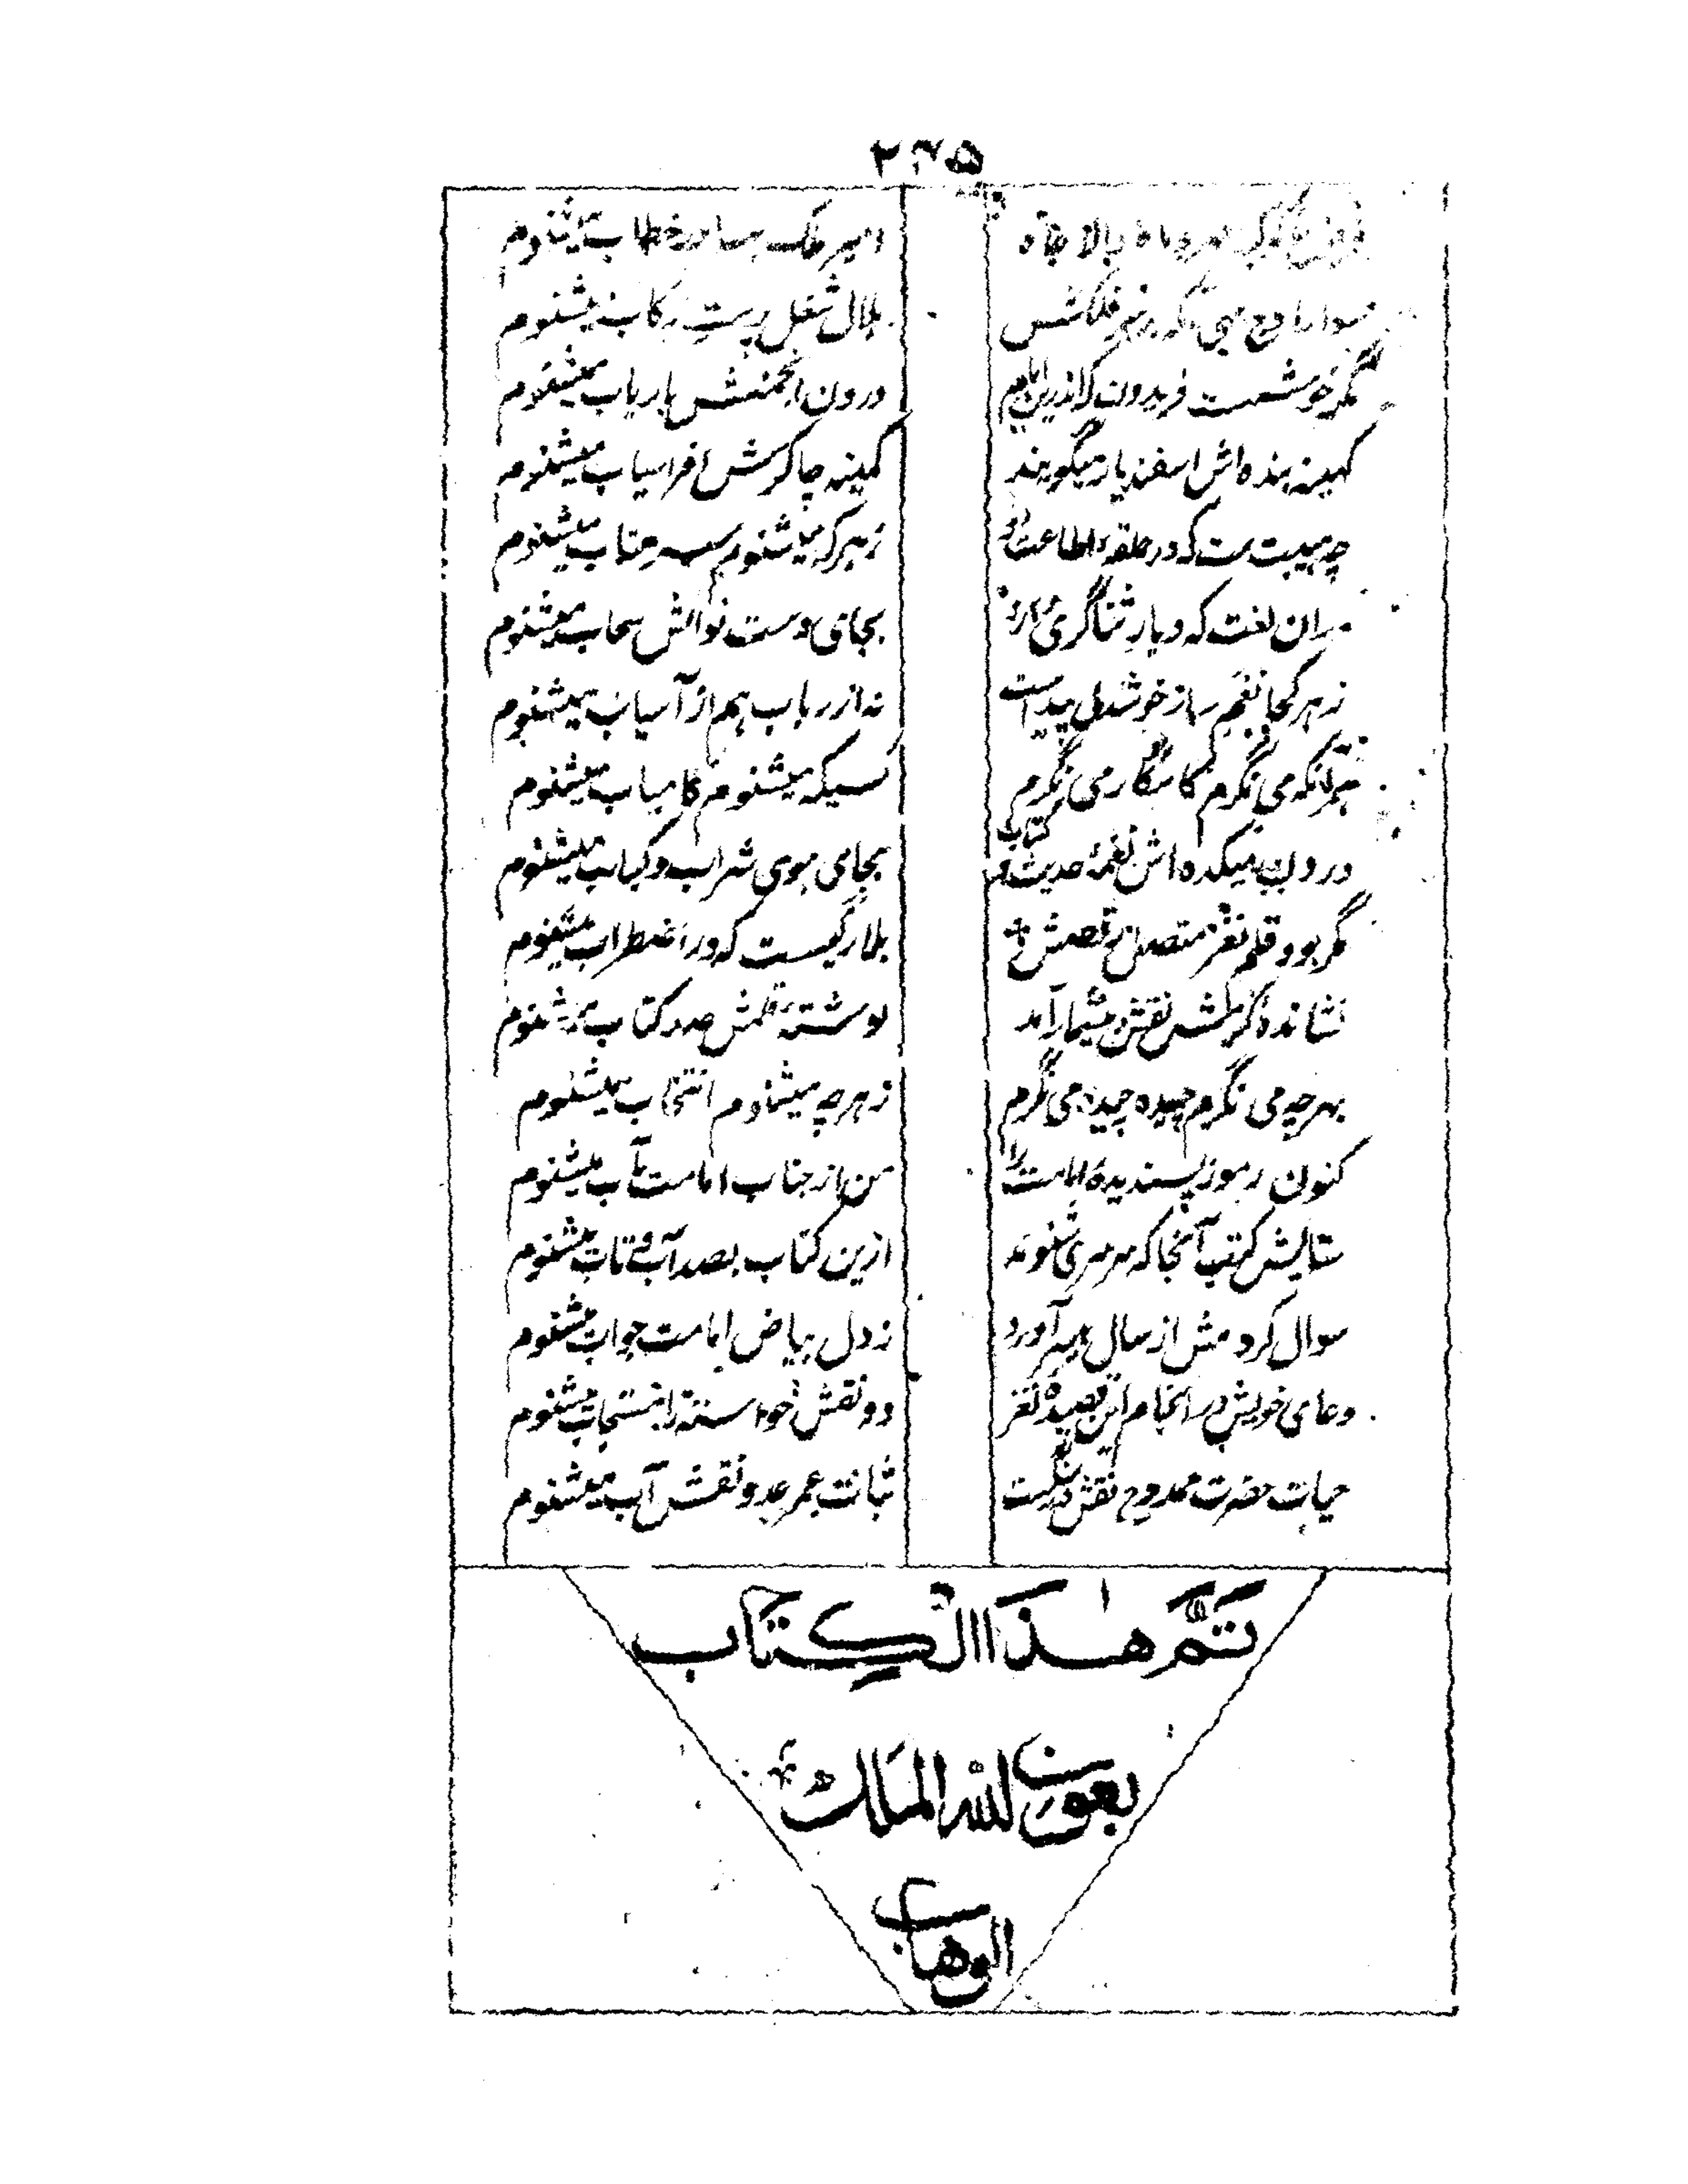 امیر ملک بهادر خطاب میشنوم
هلال شغل پرست رکاب میشنوم
مگر خوشست فریدون که اندرین ایام
درون انجمنش باریاب میشنوم
کهینه بنده اش اسفندیار میگویند
کمینه چاکرش افراسیاب میشنوم
چه هیبت ست که در حلقهٔ اطاعت او
زهر که میشنوم سر حتاب میشنوم
ران لغت که دیار ثناگری دارد
بجای دست نوالش سحاب میشنوم
زهر کجا نغم ساز خوشدلی پیداست
نه از رباب هم از آسیاب میشنوم
بهر که می نگرم کامگار می نگرم
کسیکه میشنوم کامیاب میشنوم
درون میکده اش نغمهٔ حدیث و کتاب
بجای بوی شراب و کباب میشنوم
مگر بود قلم نغز متصل رقصش
بلارگیست که در اضطراب میشنوم
نشانده کز نقش بیشمار آمد
نوشتهٔ قلمش صد کتاب میشنوم
بهر چه می نگرم چیده چیده می نگرم
زهر چه میشنوم انتخاب میشنوم
کنون رموز پسندیدهٔ امامت را
من از جناب امامت مآب میشنوم
ستایش کتب آنجا که سرسری شنوند
ازین کتاب بصد آب و تاب میشنوم
سوال کردمش از سال هاتف آورد
ز دل بیاض امامت جواب میشنوم
دعای خویش در انجام این قصیدهٔ نغز
دو نقش خواسته را مستجاب میشنوم
حیات حضرت ممدوح نقش در سنگست
ثبات عمر عدو نقش آب میشنوم
تَمَّ هٰذَا الْكِتَاب
بعون الله الملك
الوهاب